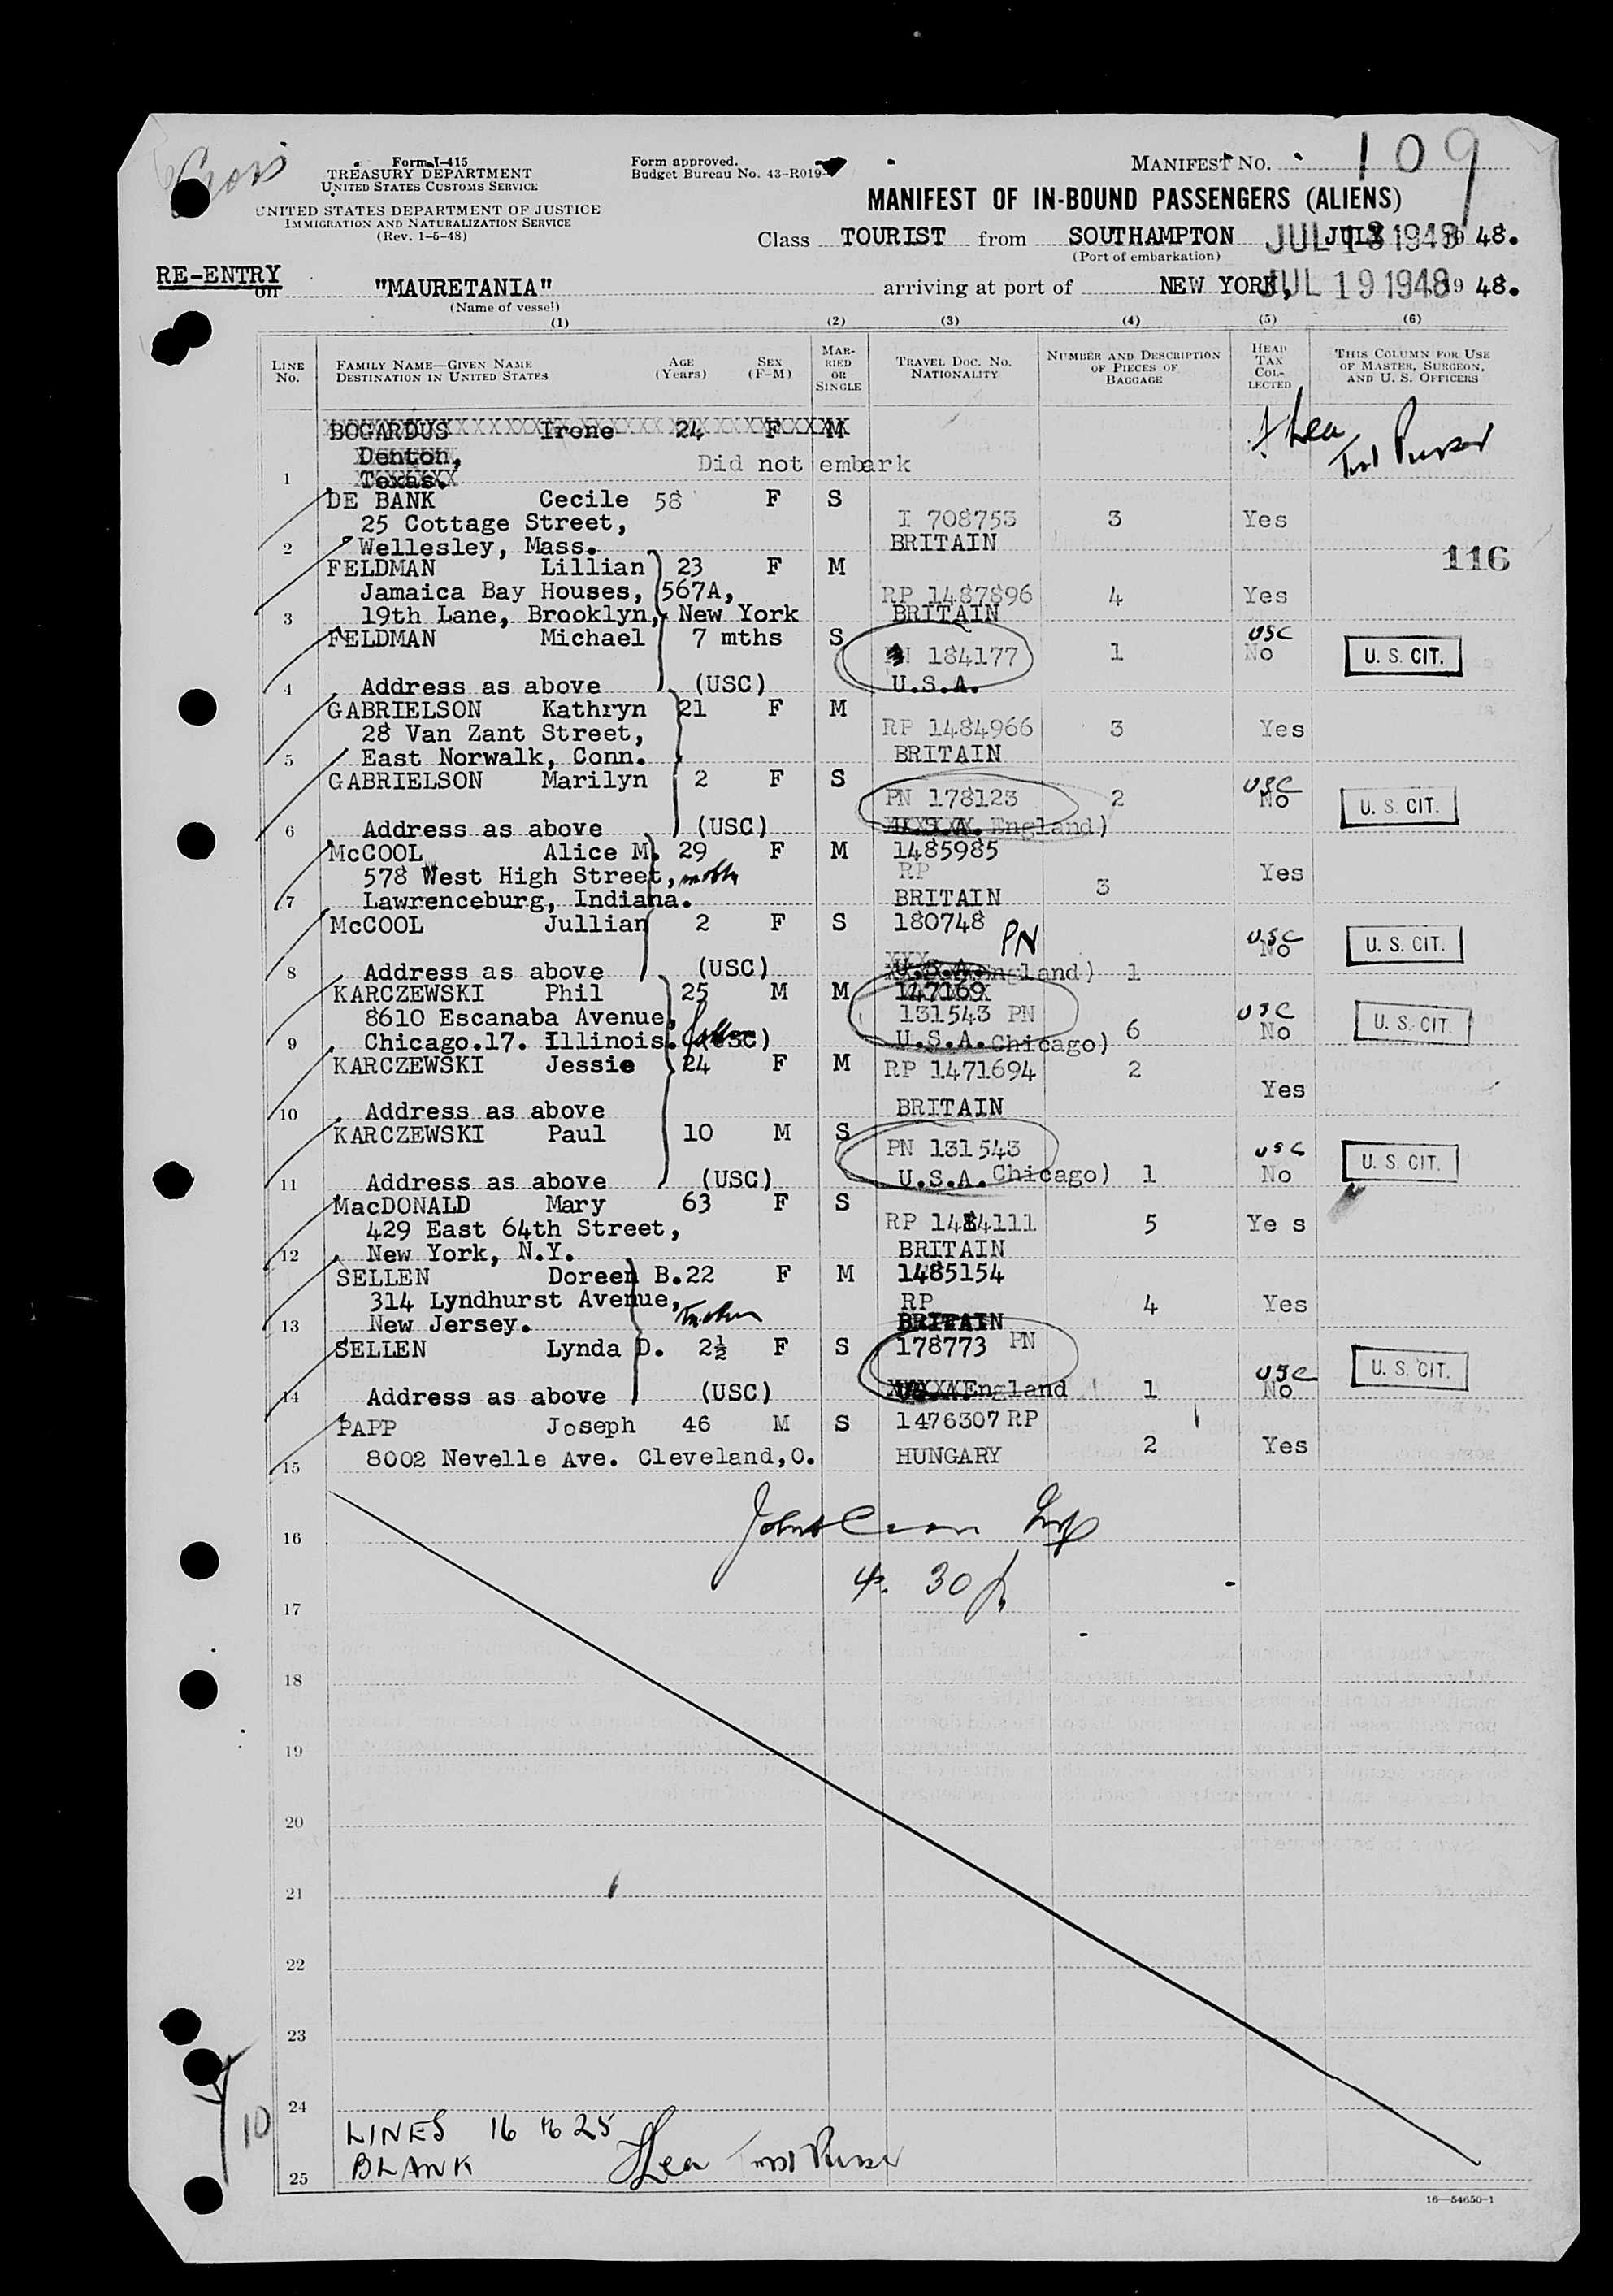 Form I-415
TREASURY DEPARTMENT
UNITED STATES CUSTOMS SERVICE
UNITED STATES DEPARTMENT OF JUSTICE
IMMIGRATION AND NATURALIZATION SERVICE
(Rev. 1-5-48)
Form approved.
Budget Bureau No. 43-R019
MANIFEST NO. 109
MANIFEST OF IN-BOUND PASSENGERS (ALIENS)
Class TOURIST from SOUTHAMPTON JULY JUL 13 1948 48.
(Port of embarkation)
RE-ENTRY
on "MAURETANIA" arriving at port of NEW YORK, JUL 19 1948 19 48.
(Name of vessel)
(1) (2) (3) (4) (5) (6)
LINE No. FAMILY NAME—GIVEN NAME DESTINATION IN UNITED STATES AGE (Years) SEX (F-M) MARRIED OR SINGLE TRAVEL DOC. NO. NATIONALITY NUMBER AND DESCRIPTION OF PIECES OF BAGGAGE HEAD TAX COLLECTED THIS COLUMN FOR USE OF MASTER, SURGEON, AND U. S. OFFICERS
BOGARDUS Irene 24 F M
Denton, Did not embark
1 Texas.
DE BANK Cecile 58 F S
25 Cottage Street, I 708753 3 Yes
2 Wellesley, Mass. BRITAIN
116
FELDMAN Lillian 23 F M
Jamaica Bay Houses, 567A, RP 1487896 4 Yes
3 19th Lane, Brooklyn, New York BRITAIN
FELDMAN Michael 7 mths S USC
PN 184177 1 No U. S. CIT.
4 Address as above (USC) U.S.A.
GABRIELSON Kathryn 21 F M
28 Van Zant Street, RP 1484966 3 Yes
5 East Norwalk, Conn. BRITAIN
GABRIELSON Marilyn 2 F S USC
PN 178123 2 No U. S. CIT.
6 Address as above (USC) U.S.A. England)
McCOOL Alice M. 29 F M 1485985
578 West High Street, RP Yes
7 Lawrenceburg, Indiana. BRITAIN 3
McCOOL Jullian 2 F S 180748 PN
USC No U. S. CIT.
8 Address as above (USC) U.S.A. England) 1
KARCZEWSKI Phil 25 M M 147169
8610 Escanaba Avenue, 131543 PN USC U. S. CIT.
9 Chicago.17. Illinois. (USC) U.S.A. Chicago) 6 No
KARCZEWSKI Jessie 24 F M RP 1471694 2
Yes
10 Address as above BRITAIN
KARCZEWSKI Paul 10 M S
PN 131543 USC U. S. CIT.
11 Address as above (USC) U.S.A. Chicago) 1 No
MacDONALD Mary 63 F S
429 East 64th Street, RP 1484111 5 Ye s
12 New York, N.Y. BRITAIN
SELLEN Doreen B. 22 F M 1485154
314 Lyndhurst Avenue, RP 4 Yes
13 New Jersey. BRITAIN
SELLEN Lynda D. 2½ F S 178773 PN
USC U. S. CIT.
14 Address as above (USC) England 1 No
PAPP Joseph 46 M S 1476307 RP
15 8002 Nevelle Ave. Cleveland,O. HUNGARY 2 Yes
16
4. 30 p
17
18
19
20
21
22
23
24
10
LINES 16 to 25
BLANK
25
16—54650-1